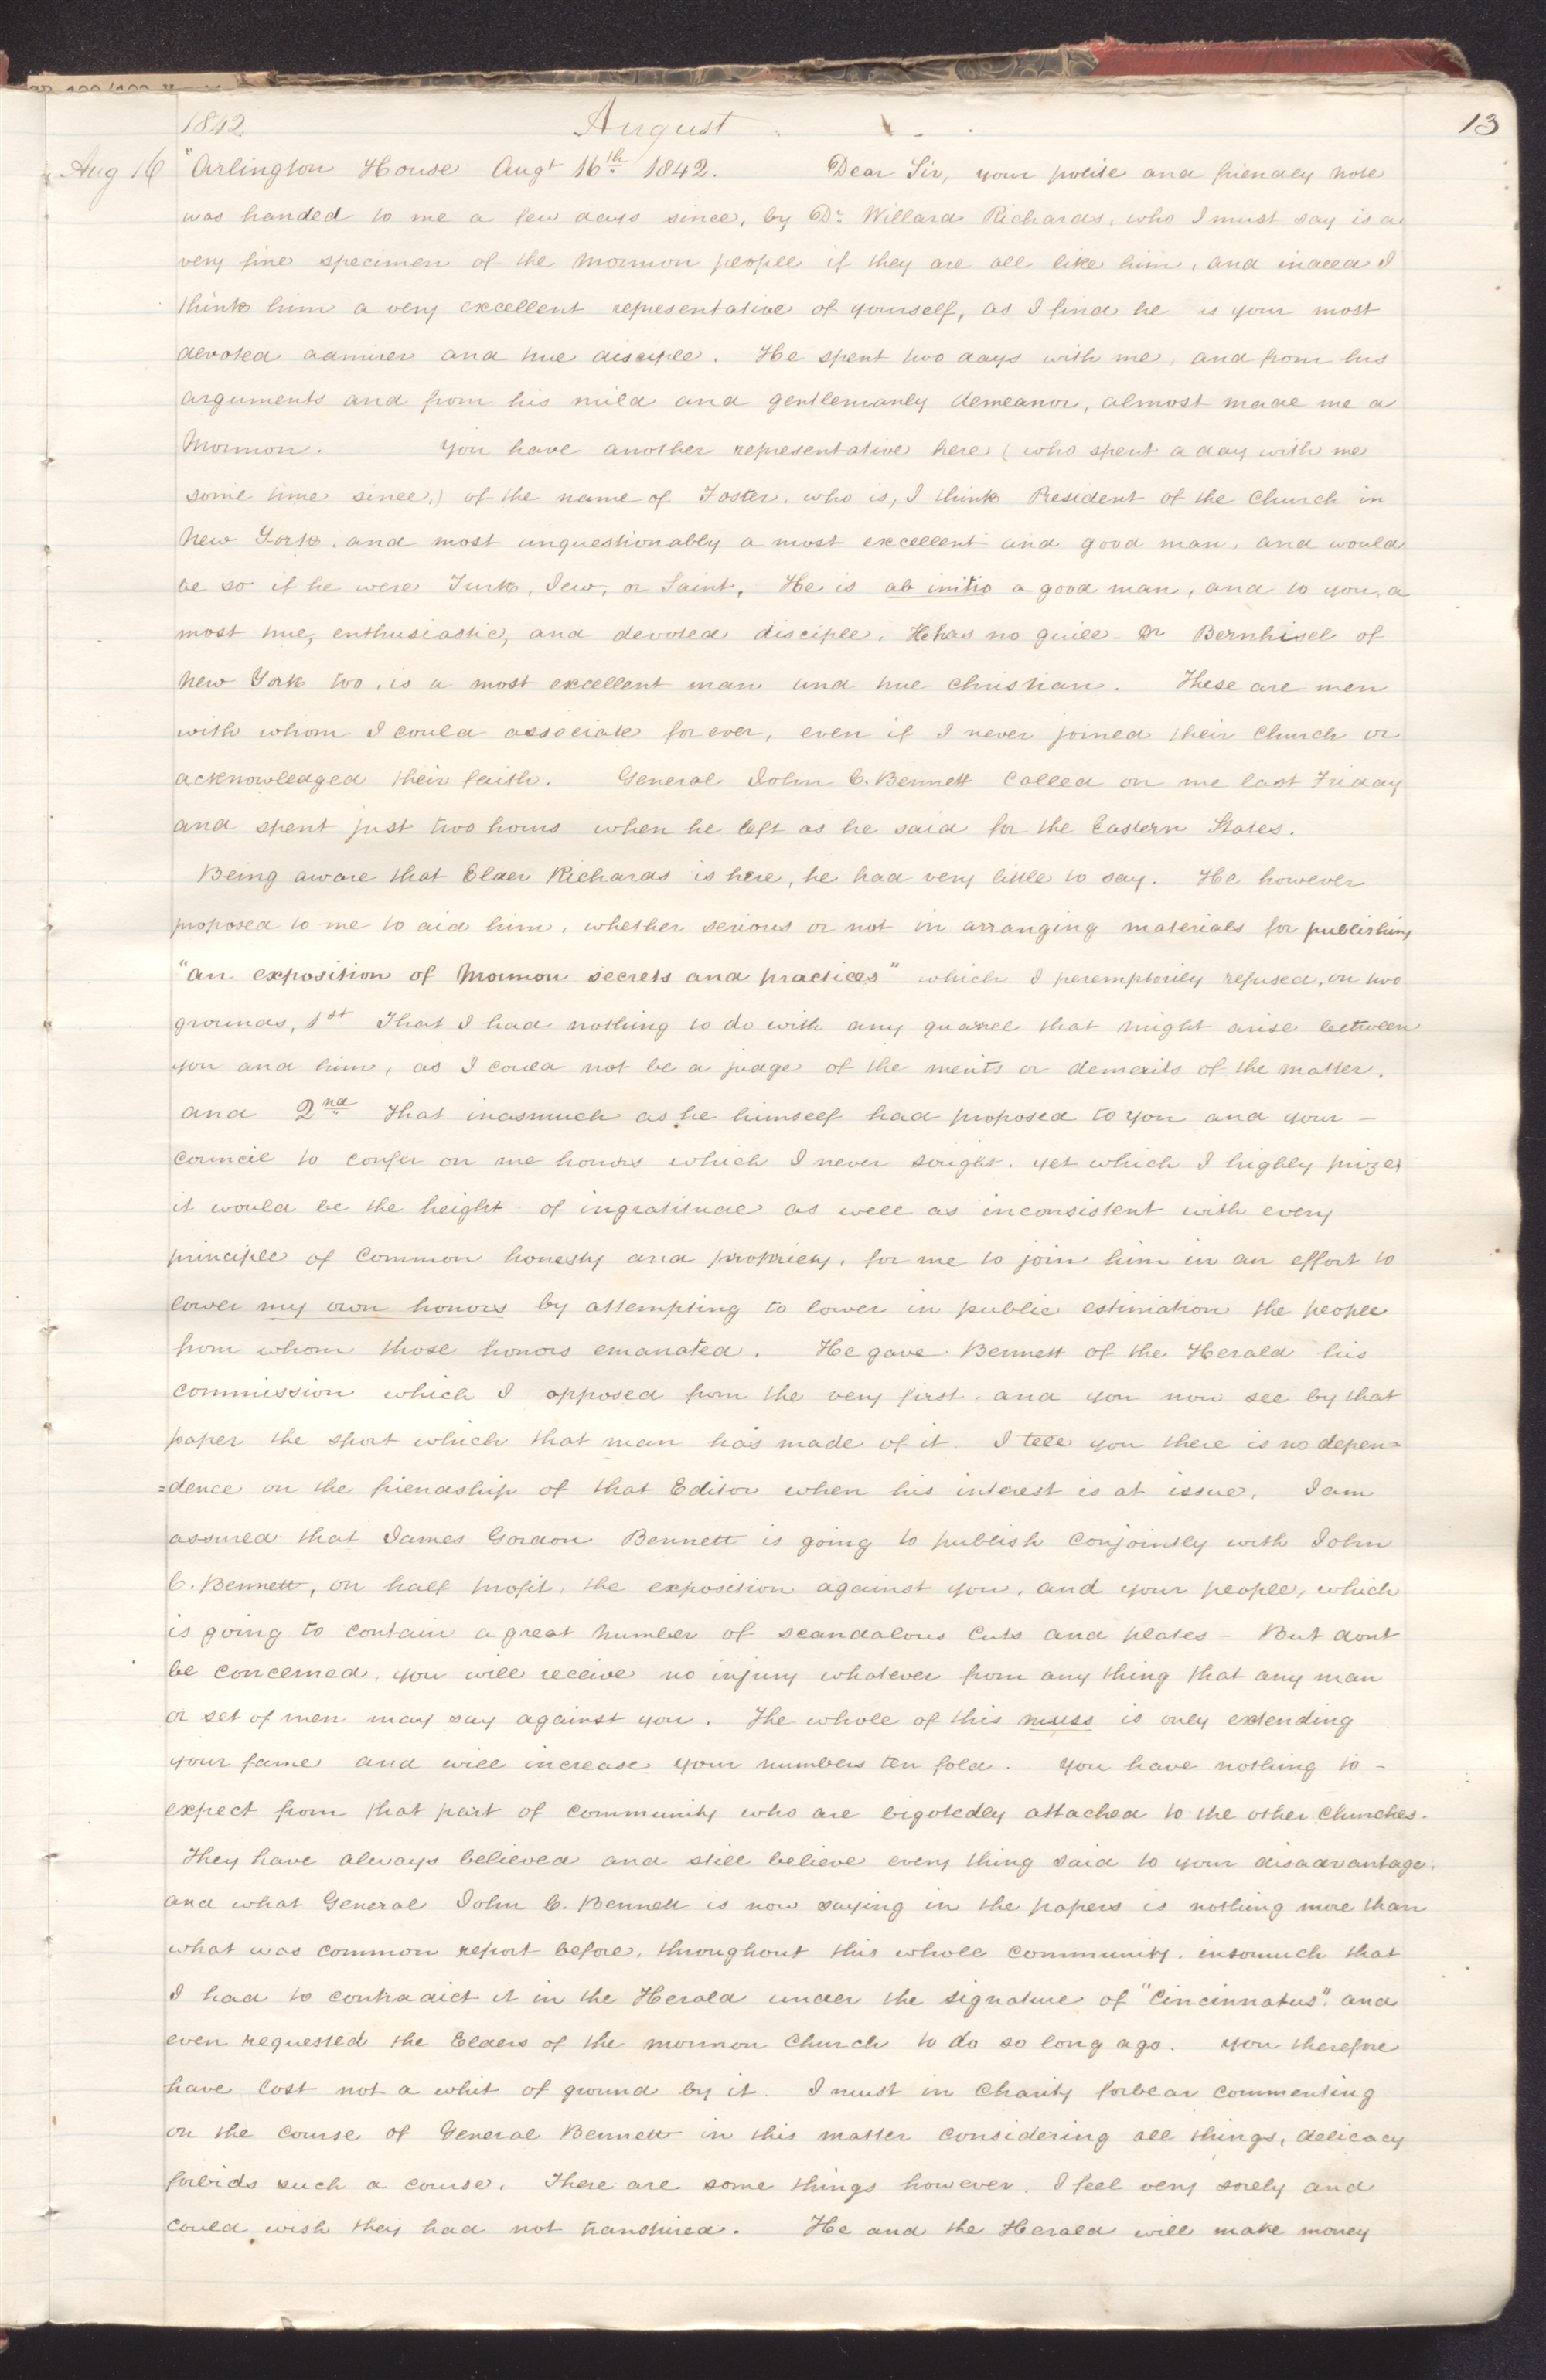 1842 August 13
Aug 16 "Arlington House Augt 16th 1842. Dear Sir, your polite and friendly note
was handed to me a few days since, by Dr Willard Richards, who I must say is a
very fine specimen of the Mormon people if they are all like him, and indeed I
think him a very excellent representative of yourself, as I find he is your most
devoted admirer and true disciple. He spent two days with me, and from his
arguments and from his mild and gentlemanly demeanor, almost made me a
Mormon. You have another representative here (who spent a day with me
some time since,) of the name of Foster, who is, I think President of the Church in
New York, and most unquestionably a most excellent and good man, and would
be so if he were Turk, Jew, or Saint, He is ab initio a good man, and to you, a
most true, enthusiastic, and devoted disciple. He has no guile - Dr Bernhisel of
New York too, is a most excellent man and true christian. These are men
with whom I could associate for ever, even if I never joined their Church or
acknowledged their faith. General John C. Bennett called on me last Friday
and spent just two hours when he left as he said for the Eastern States.
Being aware that Elder Richards is here, he had very little to say. He however
proposed to me to aid him, whether serious or not in arranging materials for publishing
"an exposition of Mormon secrets and practices" which I peremptorily refused, on two
grounds, 1st That I had nothing to do with any quarrel that might arise between
you and him, as I could not be a judge of the merits or demerits of the matter.
and 2nd That inasmuch as he himself had proposed to you and your -
council to confer on me honors which I never sought, yet which I highly prize,
it would be the height of ingratitude as well as inconsistent with every
principle of common honesty and propriety, for me to join him in an effort to
lower my own honors by attempting to lower in public estimation the people
from whom those honors emanated. He gave Bennett of the Herald his
commission which I opposed from the very first, and you now see by that
paper the sport which that man has made of it. I tell you there is no depen=
=dence on the friendship of that Editor when his interest is at issue, I am
assured that James Gordon Bennett is going to publish conjointly with John
C. Bennett, on half profit, the exposition against you, and your people, which
is going to contain a great number of scandalous Cuts and plates - But dont
be concerned, you will receive no injury whatever from any thing that any man
or set of men may say against you. The whole of this muss is only extending
your fame and will increase your numbers ten fold. You have nothing to -
expect from that part of community who are bigotedly attached to the other Churches.
They have always believed and still believe every thing said to your disadvantage,
and what General John C. Bennett is now saying in the papers is nothing more than
what was common report before, throughout this whole community, insomuch that
I had to contradict it in the Herald under the signature of "Cincinnatus". and
even requested the Elders of the mormon Church to do so long ago. You therefore
have lost not a whit of ground by it. I must in Charity forbear commenting
on the course of General Bennett in this matter considering all things, delicacy
forbids such a course. There are some things however, I feel very sorely and
could wish they had not transpired. He and the Herald will make money